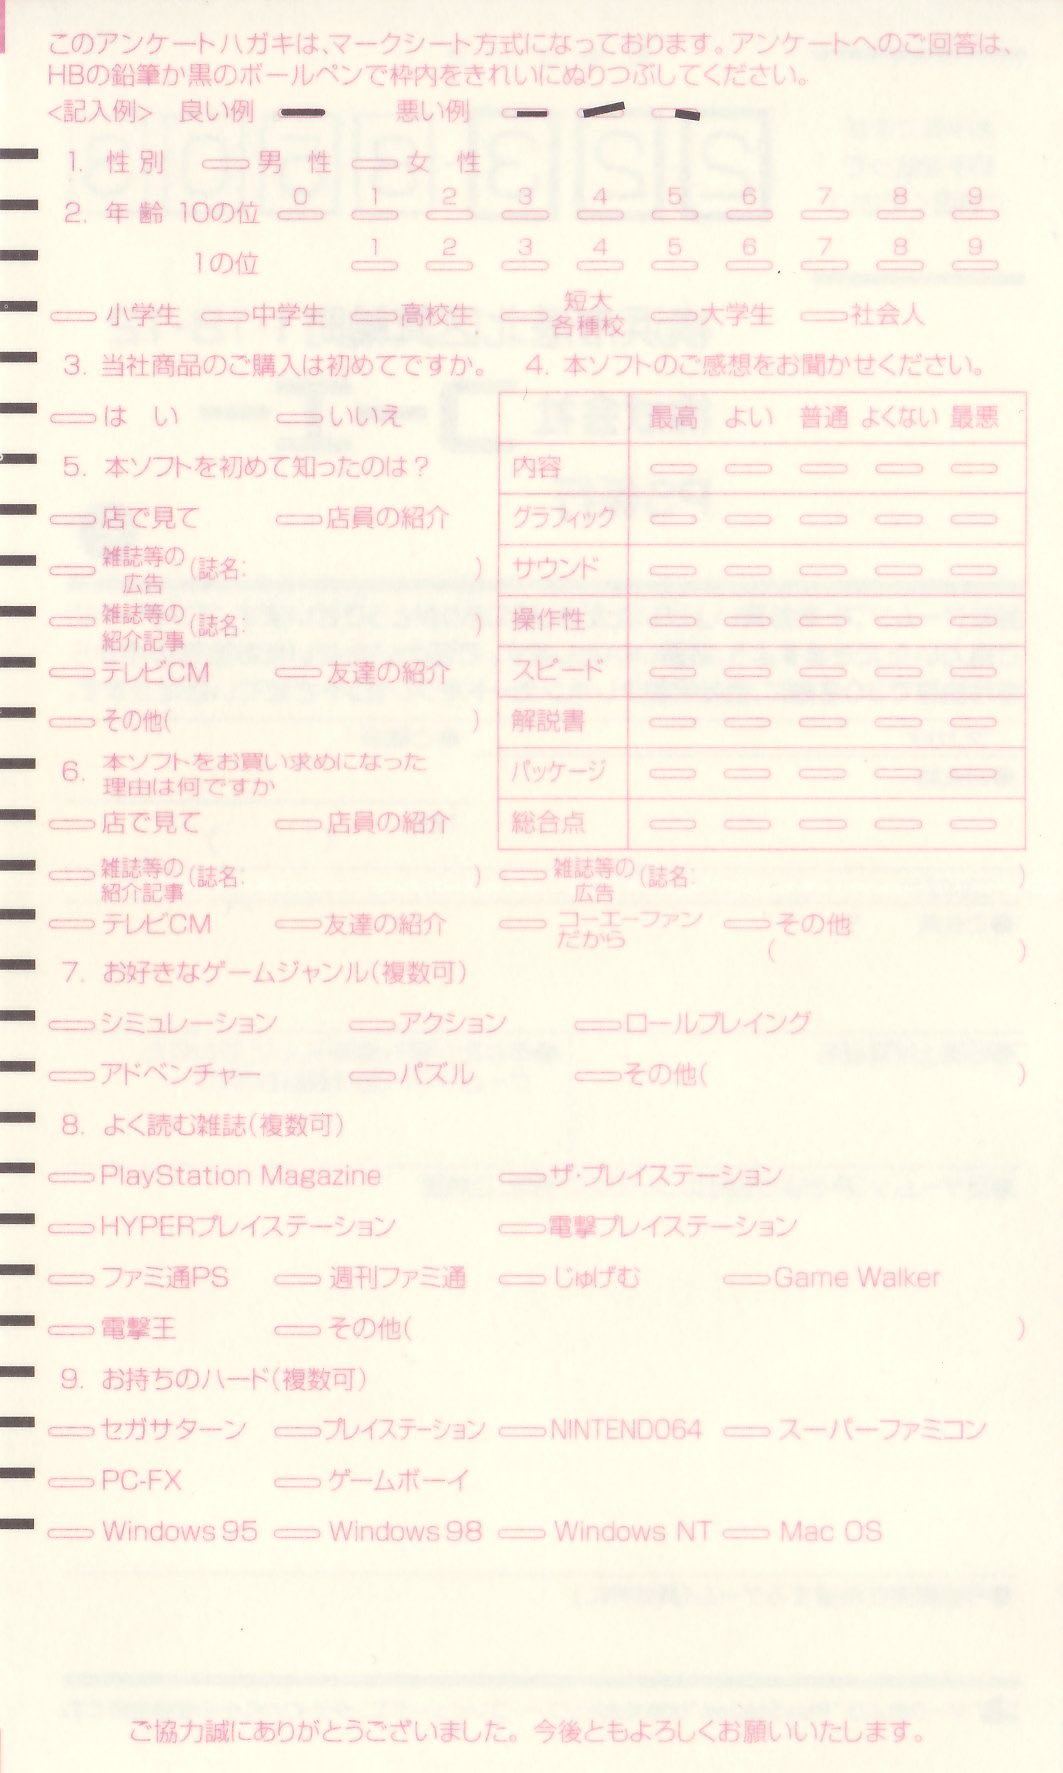 このアンケートハガキは、マークシート方式になっております。アンケートへのご回答は、
HBの鉛筆か黒のボールペンで枠内をきれいにぬりつぶしてください。
<記入例> 良い例 悪い例
1. 性別 男 性 女 性
2. 年齢 10の位 0 1 2 3 4 5 6 7 8 9
1の位 1 2 3 4 5 6 7 8 9
小学生 中学生 高校生 短大各種校 大学生 社会人
3. 当社商品のご購入は初めてですか。
は い いいえ
4. 本ソフトのご感想をお聞かせください。
最高 よい 普通 よくない 最悪
内容
グラフィック
サウンド
操作性
スピード
解説書
パッケージ
総合点
5. 本ソフトを初めて知ったのは？
店で見て 店員の紹介
雑誌等の広告 (誌名: )
雑誌等の紹介記事 (誌名: )
テレビCM 友達の紹介
その他( )
6. 本ソフトをお買い求めになった
理由は何ですか
店で見て 店員の紹介
雑誌等の紹介記事 (誌名: ) 雑誌等の広告 (誌名: )
テレビCM 友達の紹介 コーエーファンだから その他
( )
7. お好きなゲームジャンル(複数可)
シミュレーション アクション ロールプレイング
アドベンチャー パズル その他( )
8. よく読む雑誌(複数可)
PlayStation Magazine ザ・プレイステーション
HYPERプレイステーション 電撃プレイステーション
ファミ通PS 週刊ファミ通 じゅげむ Game Walker
電撃王 その他( )
9. お持ちのハード(複数可)
セガサターン プレイステーション NINTENDO64 スーパーファミコン
PC-FX ゲームボーイ
Windows 95 Windows 98 Windows NT Mac OS
ご協力誠にありがとうございました。今後ともよろしくお願いいたします。